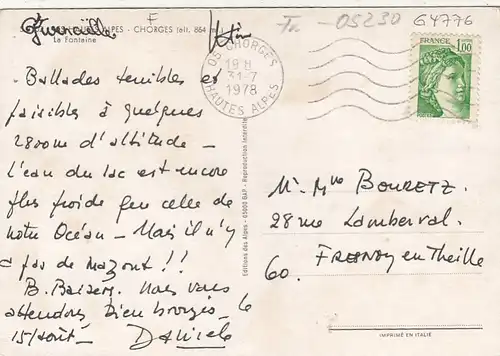 F
Tr -05230 G4776
ALPES - CHORGES (alt. 864 m.)
La Fontaine
05 CHORGES
19 H
31-7
1978
HAUTES ALPES
FRANCE
1,00
. Ballades tenibles et
paisibles à quelques
2800m d'altitude -
L'eau du lac est encore
plus froide que celle de
notre Océan - Mais il n'y
a pas de mazout !!
B. Baisers. Nous vous
attendons bien bronzés - le
15/Août - Daniele
Editions des Alpes - 05000 GAP - Reproduction interdite
M. Mme BOURETZ
28 rue Lamberval.
60. FRESNOY en Theille
IMPRIMÉ EN ITALIE